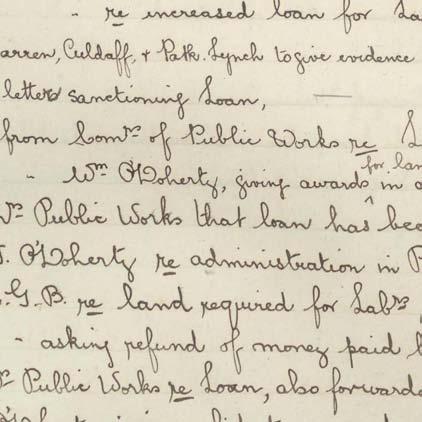 " re increased loan for La
arren, Culdaff, & Patk. Lynch to give evidence
letters sanctioning Loan,
from Comrs of Public Works re L
" Wm O'Doherty, giving awards for lan in a
rs Public Works that loan has bee
J. O'Doherty re administration in P
. G. B. re land required for Labrs
" asking refund of money paid
rs Public Works re Loan, also forwarde